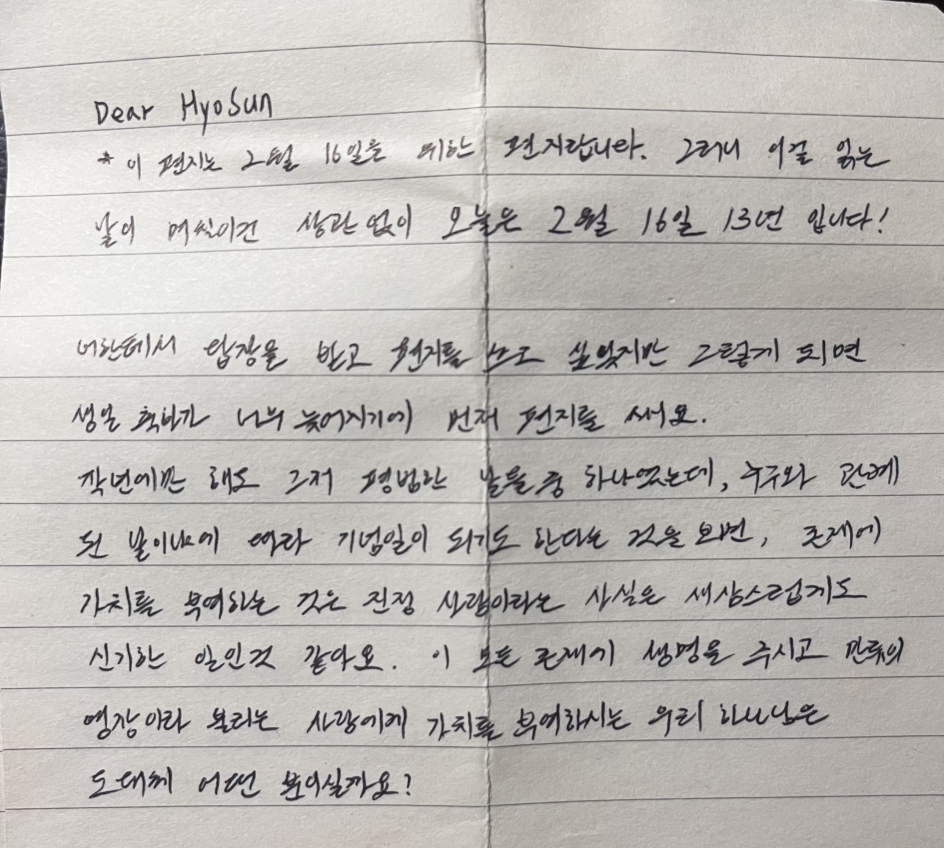 Dear HyoSun
* 이 편지는 2월 16일을 위한 편지랍니다. 그러니 이걸 읽는
날이 며칠이건 상관 없이 오늘은 2월 16일 13년 입니다!
너한테서 답장을 받고 편지를 쓰고 싶었지만 그렇게 되면
생일 축하가 너무 늦어지기에 먼저 편지를 써요.
작년에만 해도 그저 평범한 날들 중 하나였는데, 누구와 관계
된 날이냐에 따라 기념일이 되기도 한다는 것을 보면, 존재에
가치를 부여하는 것은 진정 사람이라는 사실은 새삼스럽게도
신기한 일인것 같아요. 이 모든 존재에 생명을 주시고 만물의
영장이라 불리는 사람에게 가치를 부여하시는 우리 하나님은
도대체 어떤 분이실까요?